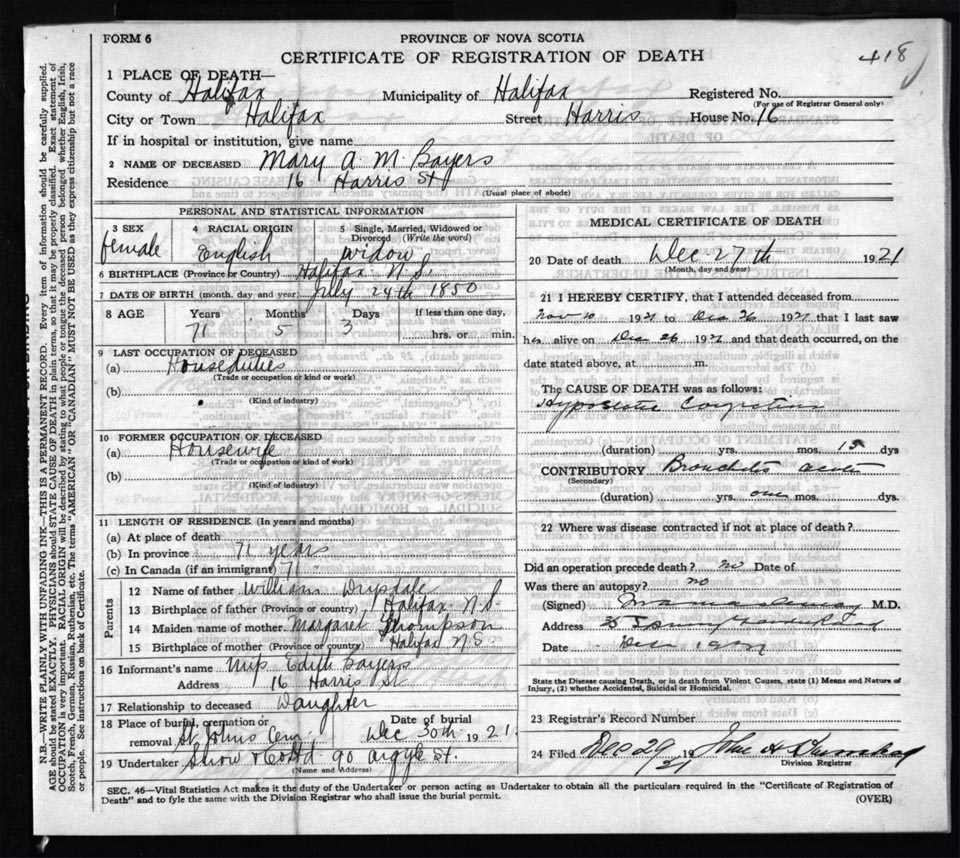 FORM 6
PROVINCE OF NOVA SCOTIA
CERTIFICATE OF REGISTRATION OF DEATH
418
1 PLACE OF DEATH—
County of Halifax Municipality of Halifax Registered No.
(For use of Registrar General only)
City or Town Halifax Street Harris House No. 16
If in hospital or institution, give name
2 NAME OF DECEASED Mary A. M. Bayers
Residence 16 Harris St
(Usual place of abode)
PERSONAL AND STATISTICAL INFORMATION
3 SEX 4 RACIAL ORIGIN 5 Single, Married, Widowed or Divorced (Write the word)
female English Widow
6 BIRTHPLACE (Province or Country) Halifax N.S.
7 DATE OF BIRTH (month, day and year) July 24th 1850
8 AGE Years Months Days If less than one day,
71 5 3 hrs. or min.
9 LAST OCCUPATION OF DECEASED
(a) Houseduties
(Trade or occupation or kind or work)
(b)
(Kind of industry)
10 FORMER OCCUPATION OF DECEASED
(a) Housewife
(Trade or occupation or kind or work)
(b)
(Kind of industry)
11 LENGTH OF RESIDENCE (In years and months)
(a) At place of death
(b) In province 71 years
(c) In Canada (if an immigrant) 71 "
Parents
12 Name of father William Drysdale
13 Birthplace of father (Province or country) Halifax N.S.
14 Maiden name of mother Margaret Thompson
15 Birthplace of mother (Province or country) Halifax N.S.
16 Informant's name Edith Bayers
Address 16 Harris St.
17 Relationship to deceased Daughter
18 Place of burial, cremation or removal St Johns Cem. Date of burial Dec 30th 1921.
19 Undertaker Snow & Co Ltd 90 Argyle St.
(Name and Address)
MEDICAL CERTIFICATE OF DEATH
20 Date of death Dec 27th 1921
(Month, day and year)
21 I HEREBY CERTIFY, that I attended deceased from
Nov 10 1921 to Dec 26 1921 that I last saw
her alive on Dec 26 1921 and that death occurred, on the
date stated above, at m.
The CAUSE OF DEATH was as follows:
Hypostatic Congestion
(duration) yrs. mos. 15 dys
CONTRIBUTORY Bronchitis acute
(Secondary)
(duration) yrs. one mos. dys.
22 Where was disease contracted if not at place of death?
Did an operation precede death? no Date of
Was there an autopsy? no
(Signed) M.D.
Address
Date Dec 1921
State the Disease causing Death, or in death from Violent, Causes, state (1) Means and Nature of Injury, (2) whether Accidental, Suicidal or Homicidal.
23 Registrar's Record Number
24 Filed Dec 29 19 21 John A
Division Registrar
SEC. 46—Vital Statistics Act makes it the duty of the Undertaker or person acting as Undertaker to obtain all the particulars required in the "Certificate of Registration of
Death" and to fyle the same with the Division Registrar who shall issue the burial permit.
(OVER)
N.B.—WRITE PLAINLY WITH UNFADING INK—THIS IS A PERMANENT RECORD. Every item of information should be carefully supplied.
AGE should be stated EXACTLY. PHYSICIANS should STATE CAUSE OF DEATH in plain terms, so that it may be properly classified. Exact statement of
OCCUPATION is very important. RACIAL ORIGIN will be described by stating to what people or tongue the deceased person belonged whether English, Irish,
Scotch, French, German, Russian, Ruthenian, etc. The terms "AMERICAN" OR "CANADIAN" MUST NOT BE USED as they express citizenship but not a race
or people. See instructions on back of Certificate.